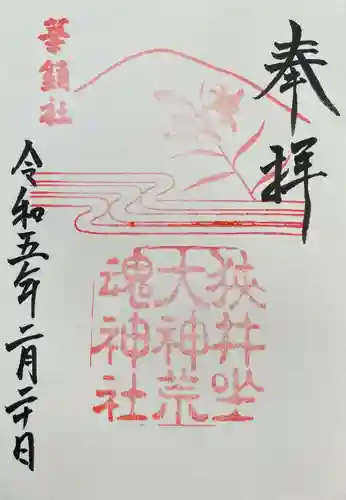 奉拝
華鎮社
狭井坐
大神荒
魂神社
令和五年二月二十日